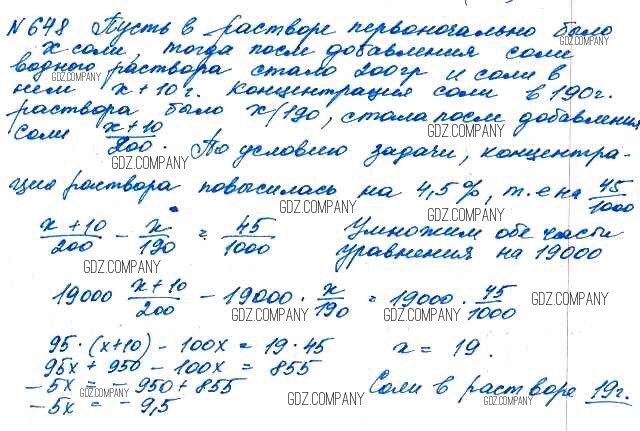 N648 Пусть в растворе первоночально было
x соли, тогда после добавления соли
водного раствора стало 200гр и соли в
GDZ.COMPANY GDZ.COMPANY
нем x + 10 г. Концентрация соли в 190г.
раствора было x/190, стала после добавления
соли (x+10)/200. По условию задачи, концентра-
GDZ.COMPANY GDZ.COMPANY
ция раствора повысилась на 4,5%, т.е на 45/1000
GDZ.COMPANY GDZ.COMPANY
(x+10)/200 - x/190 = 45/1000 Умножим обе части
уравнения на 19000
GDZ.COMPANY
19000 (x+10)/200 - 19000 · x/190 = 19000 · 45/1000
GDZ.COMPANY GDZ.COMPANY GDZ.COMPANY
95 · (x+10) - 100x = 19 · 45 x = 19.
95x + 950 - 100x = 855
-5x = -950 + 855 Соли в растворе 19г.
-5x = -9,5
GDZ.COMPANY GDZ.COMPANY GDZ.COMPANY